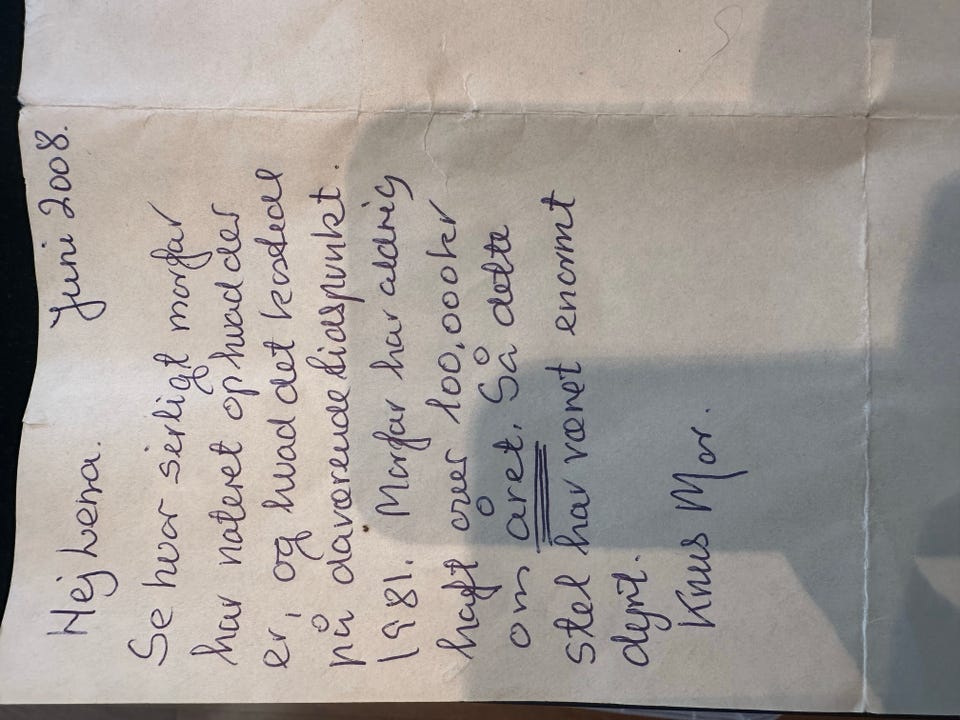 Hej Lena. Juni 2008.
Se hvor serligt morfar
har noteret op hvad der
er, og hvad det kostede
på daværende tidspunkt.
1981. Morfar har aldrig
haft over 100,000 kr
om året. Så dette
stel har været enormt
dejrt.
Knus Mor.